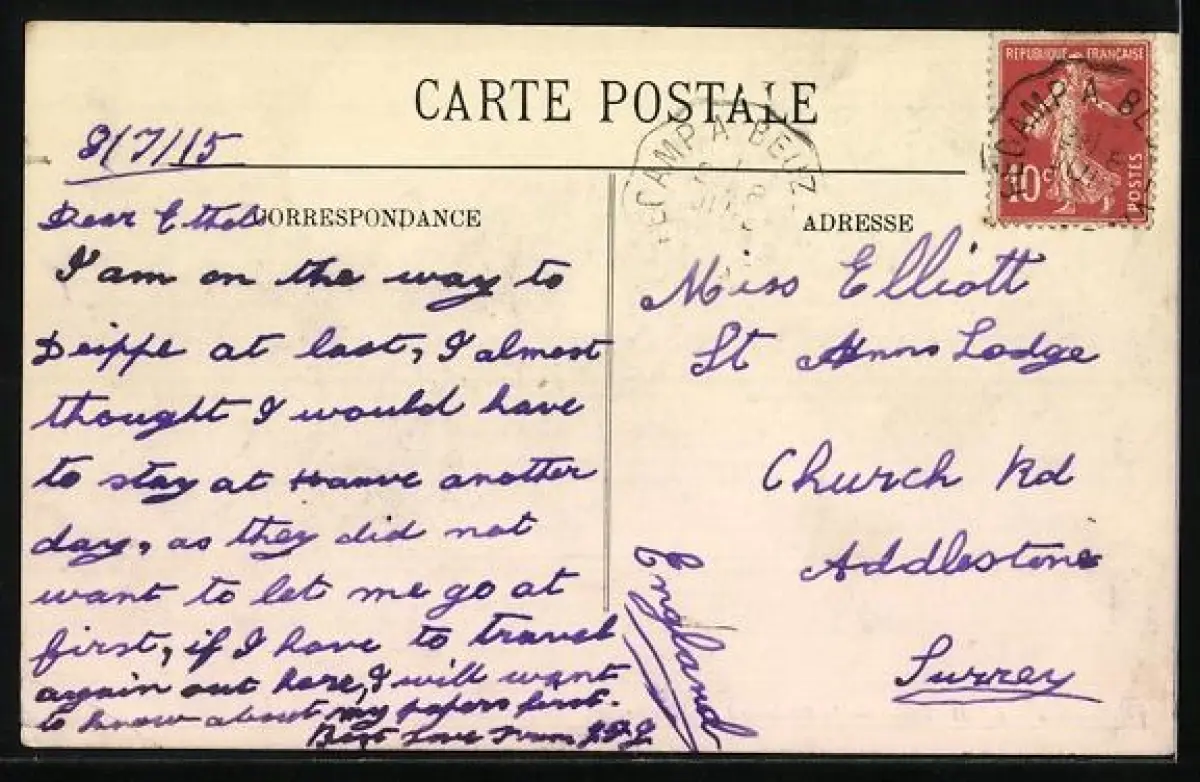 CARTE POSTALE
RÉPUBLIQUE FRANÇAISE
10c
POSTES
FÉCAMP A BEUZ
8/7/15
CORRESPONDANCE
ADRESSE
Dear Ethel
I am on the way to
Deippe at last, I almost
thought I would have
to stay at Havre another
day, as they did not
want to let me go at
first, if I have to travel
again out here, I will want
to know about my papers first.
Best Love From
Miss Elliott
St Anns Lodge
Church Rd
Addlestone
Surrey
England